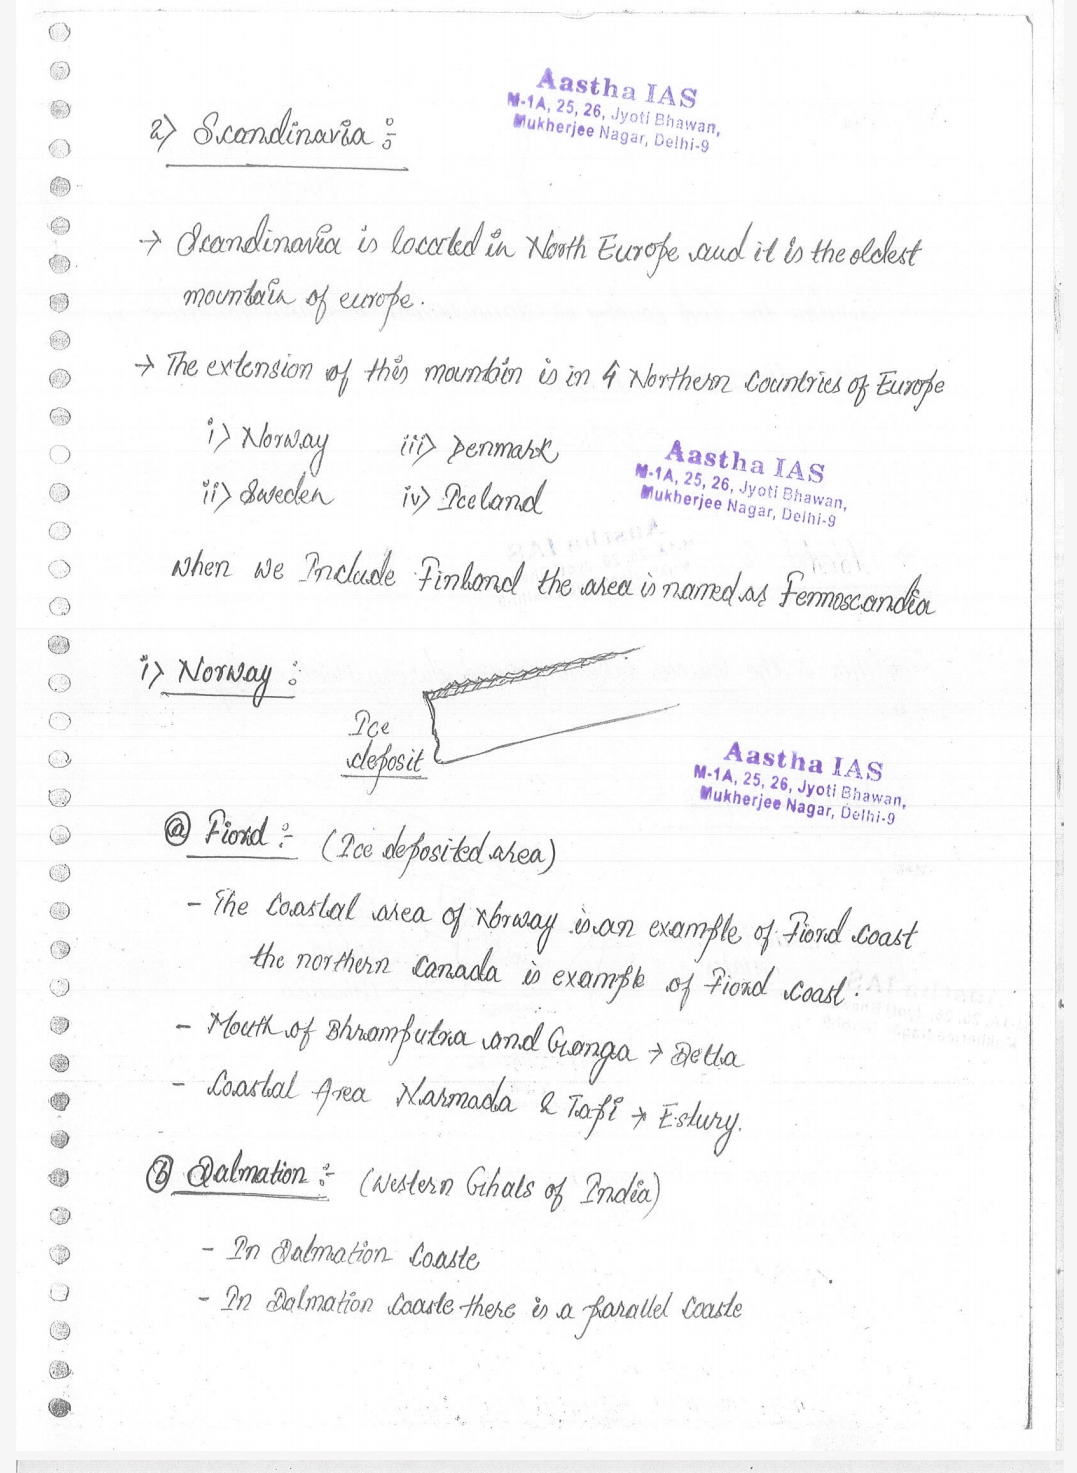 Aastha IAS
M-1A, 25, 26, Jyoti Bhawan,
Mukherjee Nagar, Delhi-9
2) Scandinavia :-
→ Scandinavia is located in North Europe and it is the oldest
mountain of europe.
→ The extension of this mountain is in 4 Northern Countries of Europe
i) Norway iii) Denmark
ii) Sweden iv) Iceland
Aastha IAS
M-1A, 25, 26, Jyoti Bhawan,
Mukherjee Nagar, Delhi-9
when we Include Finland the area is named as Fennoscandia
i) Norway :
Ice
deposit
Aastha IAS
M-1A, 25, 26, Jyoti Bhawan,
Mukherjee Nagar, Delhi-9
(a) Fiord :- (Ice deposited area)
- The Coastal area of Norway is an example of Fiord coast
the northern Canada is example of Fiord coast.
- Mouth of Bhramputra and Ganga → Delta
- Coastal Area Narmada & Tapi → Estury.
(b) Dalmation :- (Western Ghats of India)
- In Dalmation Coaste
- In Dalmation Coaste there is a parallel Coaste